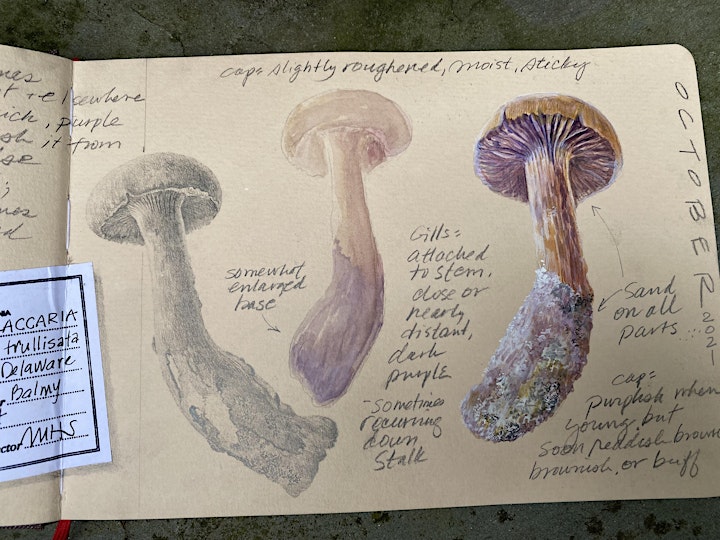 elsewhere
purple
it from
ACCARIA
trullisata
Delaware
Balmy
ctor MHS
cap = slightly roughened, moist, sticky
somewhat
enlarged
base
Gills =
attached
to stem,
close or
nearly
distant,
dark
purple
- sometimes
recurring
down
stalk
OCTOBER 2021
Sand
on all
parts
cap =
purplish when
young but
soon reddish brown
brownish, or buff